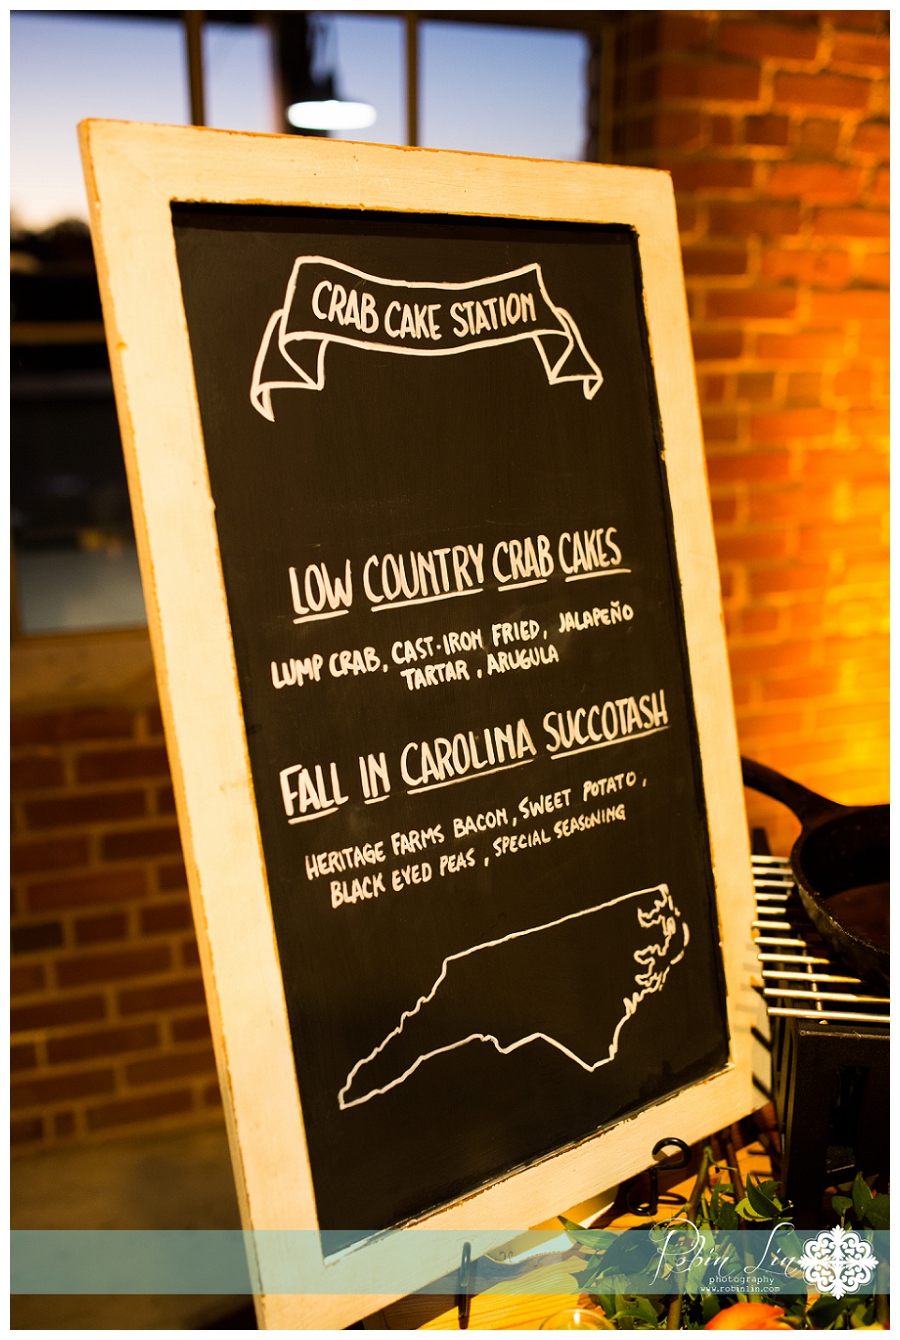 CRAB CAKE STATION
LOW COUNTRY CRAB CAKES
LUMP CRAB, CAST-IRON FRIED, JALAPEÑO
TARTAR, ARUGULA
FALL IN CAROLINA SUCCOTASH
HERITAGE FARMS BACON, SWEET POTATO,
BLACK EYED PEAS, SPECIAL SEASONING
Robin Lin
photography
www.robinlin.com